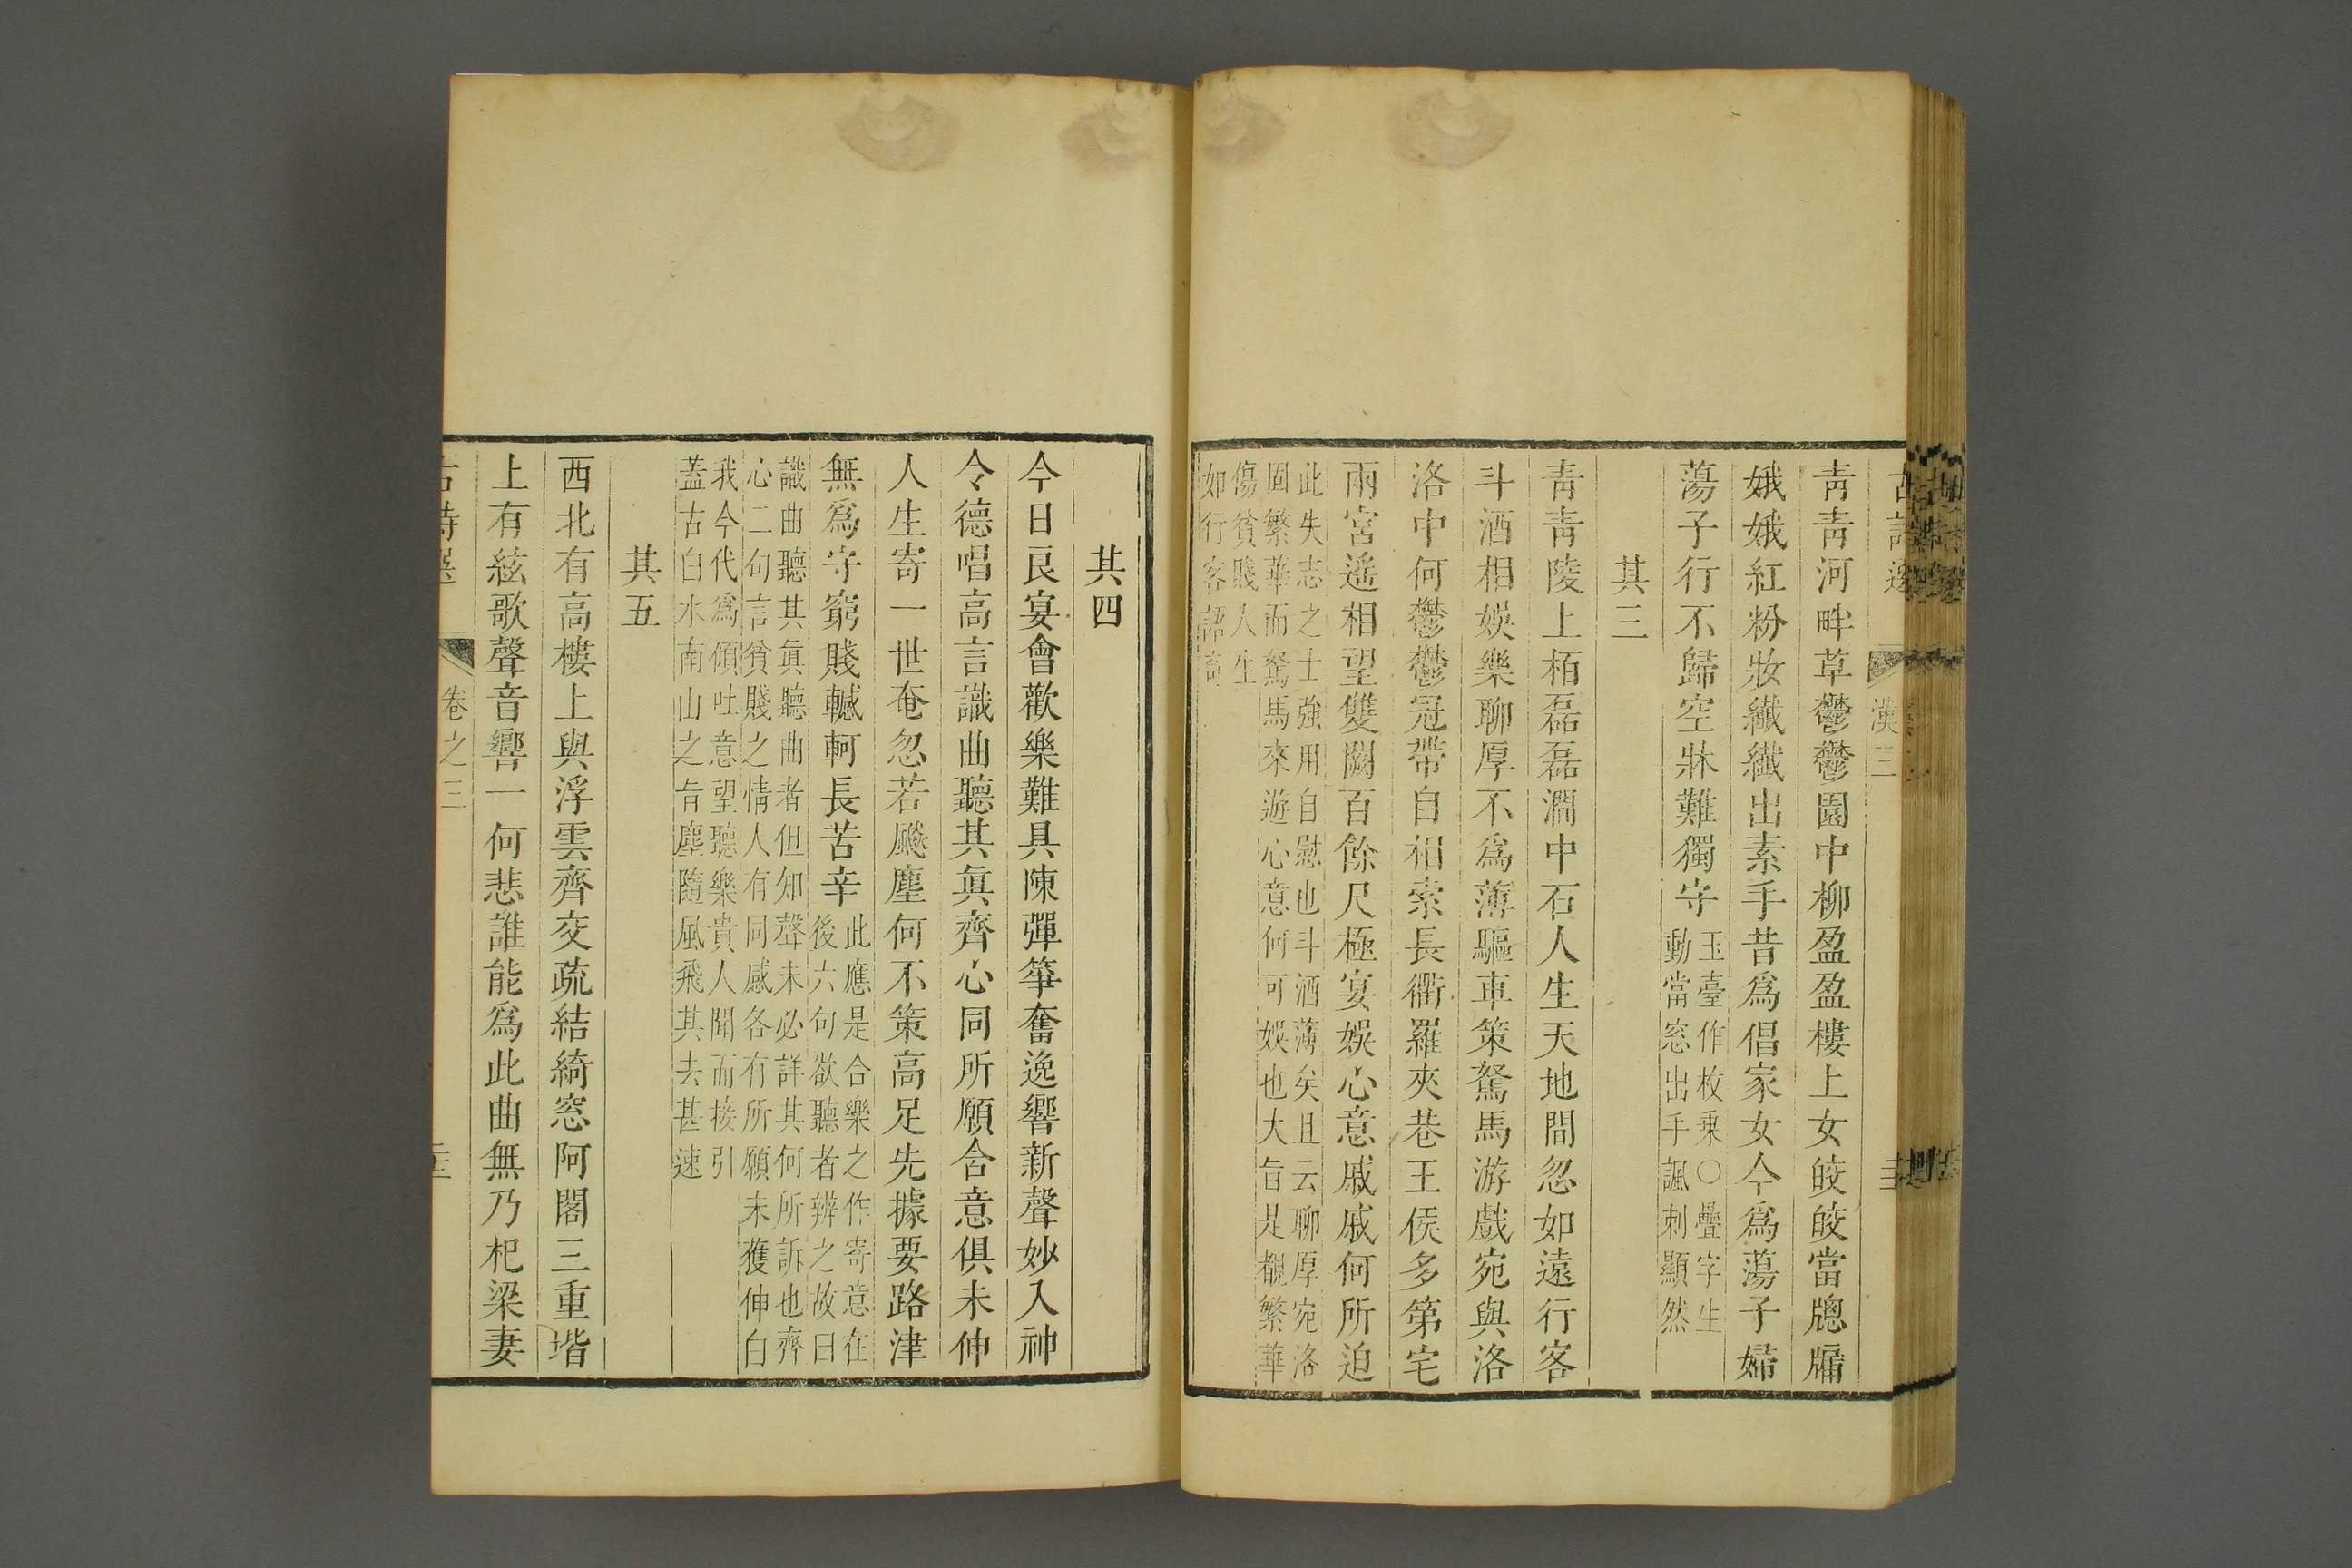 靑靑河畔草鬱鬱園中柳盈盈樓上女皎皎當牕牖
娥娥紅粉妝纖纖出素手昔爲倡家女今爲蕩子婦
蕩子行不歸空牀難獨守
玉臺作枚乘○疊字生
動當窓出手諷刺顯然
其三
靑靑陵上栢磊磊澗中石人生天地間忽如遠行客
斗酒相娛樂聊厚不爲薄驅車策駑馬游戲宛與洛
洛中何鬱鬱冠帶自相索長衢羅夾巷王侯多第宅
兩宮遙相望雙闕百餘尺極宴娛心意戚戚何所迫
此失志之士強用自慰也斗酒薄矣且云聊厚宛洛
固繁華而駑馬來遊心意何可娛也大旨是覩繁華
傷貧賤人生
如行客語奇
其四
今日良宴會歡樂難具陳彈箏奮逸響新聲妙入神
令德唱高言識曲聽其眞齊心同所願含意俱未伸
人生寄一世奄忽若飈塵何不策高足先據要路津
無爲守窮賤轗軻長苦辛
此應是合樂之作寄意在
後六句欲聽者辨之故曰
識曲聽其眞聽曲者但知聲未必詳其何所訴也齊
心二句言貧賤之情人有同感各有所願未獲伸白
我今代爲傾吐意望聽樂貴人聞而接引
蓋古白水南山之旨塵隨風飛其去甚速
其五
西北有高樓上與浮雲齊交疏結綺窓阿閣三重堦
上有絃歌聲音響一何悲誰能爲此曲無乃杞梁妻
卷之三